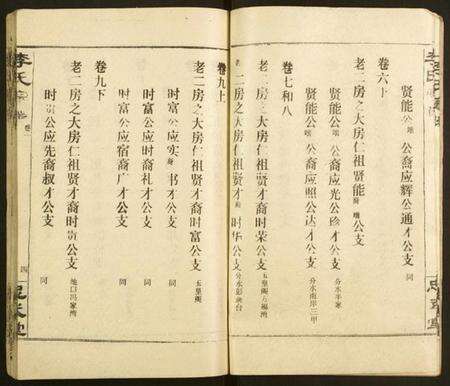 贤能公 公裔应辉公通才公支 同
卷六下
老二房之大房仁祖贤能裔 公支
贤能公 公裔应光公 才公支 分水半家
贤能公 公裔应照公达才公支 分水南岸三甲
卷七和八
老二房之大房仁祖贤才裔时荣公支
老二房之大房仁祖贤才裔时华公支 分水彭块台
卷九上
老二房之大房仁祖贤才裔时富公支 五皇阁
时富公应实裔书才公支 同
时富公应时裔礼才公支 同
时富公应宿裔广才公支 同
卷九下
老二房之大房仁祖贤才裔时贵公支 冯家湾
时贵公应先裔叔才公支 同
李氏
四